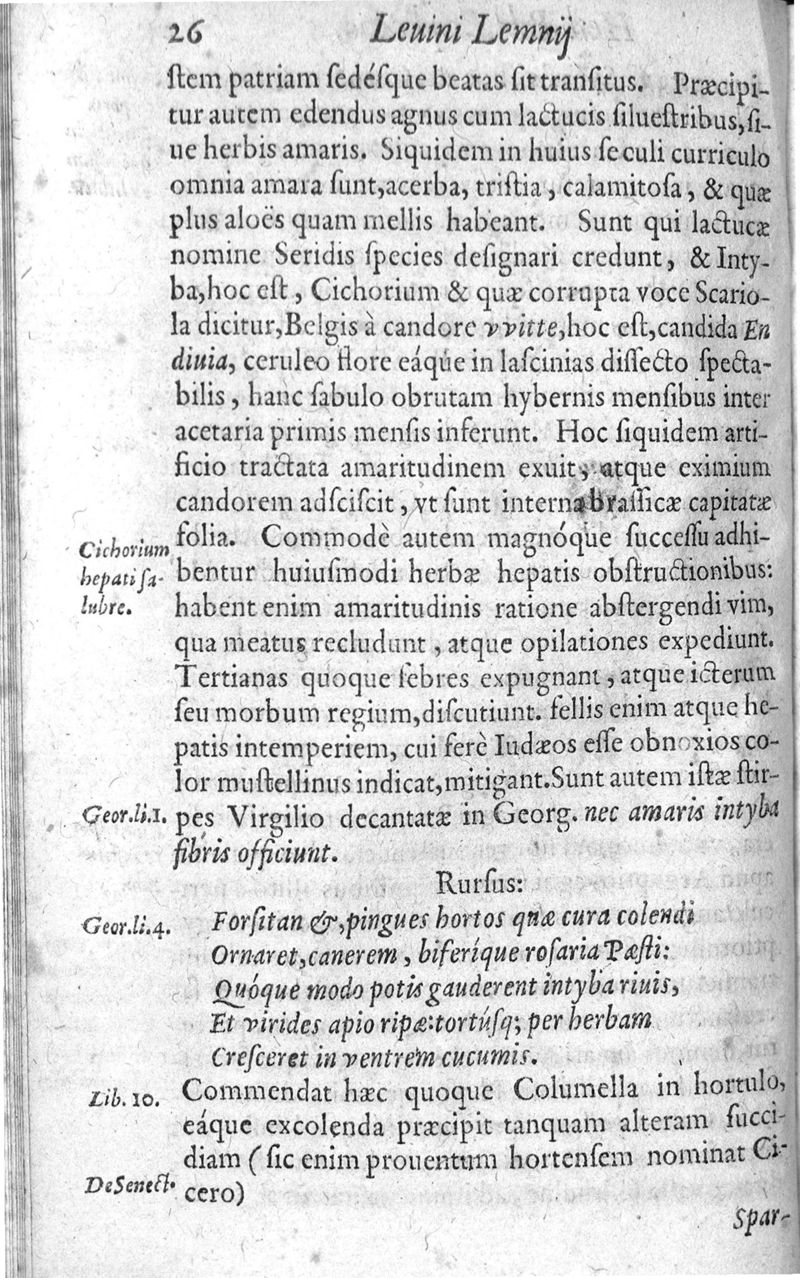 26 Leuini Lemnij
ſtem patriam ſedéſque beatas ſit tranſitus. Præcipi-
tur autem edendus agnus cum lactucis ſilueſtribus, ſi-
ue herbis amaris. Siquidem in huius ſeculi curriculo
omnia amara ſunt, acerba, triſtia, calamitoſa, & quæ
plus aloës quam mellis habeant. Sunt qui lactucæ
nomine Seridis ſpecies deſignari credunt, & Inty-
ba, hoc eſt, Cichorium & quæ corrupta voce Scario-
la dicitur, Belgis à candore vvitte, hoc eſt, candida En
diuia, ceruleo flore eáque in laſcinias diſſecto ſpecta-
bilis, hanc ſabulo obrutam hybernis menſibus inter
acetaria primis menſis inferunt. Hoc ſiquidem arti-
ficio tractata amaritudinem exuit, atque eximium
candorem adſciſcit, vt ſunt interna braſſicæ capitatæ
folia. Commodè autem magnóque ſucceſſu adhi-
Cichorium
hepati ſa-
lubre.
bentur huiuſmodi herbæ hepatis obſtructionibus:
habent enim amaritudinis ratione abſtergendi vim,
qua meatus recludunt, atque opilationes expediunt.
Tertianas quoque febres expugnant, atque icterum
ſeu morbum regium, diſcutiunt. fellis enim atque he-
patis intemperiem, cui ferè Iudæos eſſe obnoxios co-
lor muſtellinus indicat, mitigant. Sunt autem iſtæ ſtir-
Geor. li. 1.
pes Virgilio decantatæ in Georg. nec amaris intyba
fibris officiunt.
Rurſus:
Geor. li. 4.
Forſitan &, pingues hortos quæ cura colendi
Ornaret, canerem, biferíque roſaria Pæſti:
Quóque modo potis gauderent intyba riuis,
Et virides apio ripæ: tortúſq; per herbam
Creſceret in ventrem cucumis.
Lib. 10.
Commendat hæc quoque Columella in hortulo,
eáque excolenda præcipit tanquam alteram ſucci-
diam (ſic enim prouentum hortenſem nominat Ci-
De Senect.
cero)
Spar-